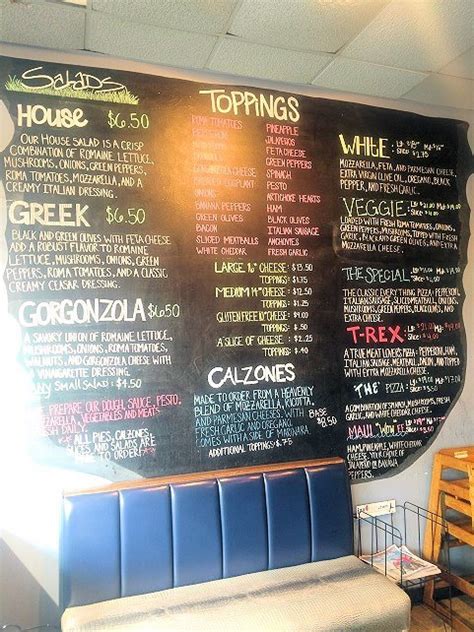 SALADS
HOUSE $6.50
OUR HOUSE SALAD IS A CRISP
COMBINATION OF ROMAINE LETTUCE,
MUSHROOMS, ONIONS, GREEN PEPPERS,
ROMA TOMATOES, MOZZARELLA, AND A
CREAMY ITALIAN DRESSING.
GREEK $6.50
BLACK AND GREEN OLIVES WITH FETA CHEESE
ADD A ROBUST FLAVOR TO ROMAINE
LETTUCE, MUSHROOMS, ONIONS, GREEN
PEPPERS, ROMA TOMATOES, AND A CLASSIC
CREAMY CEASAR DRESSING.
GORGONZOLA $6.50
A SAVORY UNION OF ROMAINE LETTUCE,
MUSHROOMS, ONIONS, ROMA TOMATOES,
WALNUTS, AND GORGONZOLA CHEESE WITH
A VINAIGARETTE DRESSING.
ANY SMALL SALAD: $4.50
WE PREPARE OUR DOUGH, SAUCE, PESTO,
MOZZARELLA, VEGETABLES AND MEATS
FRESH DAILY
ALL PIES, CALZONES,
SLICES AND SALADS ARE
MADE TO ORDER!
TOPPINGS
ROMA TOMATOES
PEPPERONI
MUSHROOMS
GORGONZOLA CHEESE
ROASTED EGGPLANT
ONION
BANANA PEPPERS
GREEN OLIVES
BACON
SLICED MEATBALLS
WHITE CHEDDAR
PINEAPPLE
JALAPENOS
FETA CHEESE
GREEN PEPPERS
SPINACH
PESTO
ARTICHOKE HEARTS
HAM
BLACK OLIVES
ITALIAN SAUSAGE
ANCHOVIES
FRESH GARLIC
LARGE 16" CHEESE: $13.50
TOPPINGS: $
MEDIUM 14" CHEESE:
TOPPINGS:
GLUTEN FREE 10" CHEESE:
TOPPINGS:
A SLICE OF CHEESE:
TOPPINGS:
CALZONES
MADE TO ORDER FROM A HEAVENLY
BLEND OF MOZZARELLA, RICOTTA,
AND PARMESAN CHEESES, WITH
FRESH GARLIC AND OREGANO.
COMES WITH A SIDE OF MARINARA
BASE
$8.50
ADDITIONAL TOPPINGS: $.75
WHITE:
MOZZARELLA, FETA, AND PARMESAN CHEESE,
EXTRA VIRGIN OLIVE OIL, OREGANO, BLACK
PEPPER, AND FRESH GARLIC.
VEGGIE:
LOADED WITH FRESH ROMA TOMATOES, ONIONS,
GREEN PEPPERS, MUSHROOMS, TOPPED WITH FRESH
GARLIC, BLACK AND GREEN OLIVES AND EXTRA
MOZZARELLA CHEESE.
THE SPECIAL
THE CLASSIC EVERYTHING PIZZA: PEPPERONI,
ITALIAN SAUSAGE, SLICED MEATBALLS, ONION,
GREEN PEPPERS, MUSHROOMS, BLACK OLIVES,
AND EXTRA CHEESE.
T-REX
A TRUE MEAT LOVERS PIZZA: PEPPERONI, HAM,
ITALIAN SAUSAGE, MEATBALL, BACON, AND TOPPED
WITH EXTRA MOZZARELLA CHEESE.
THE PIZZA:
A COMBINATION OF
AND WHITE CHEDDAR CHEESE.
MAUI "WOW"EE
HAM, PINEAPPLE, WHITE CHEDDAR
CHEESE, YOUR CHOICE OF
JALAPENO OR BANANA
PEPPERS.